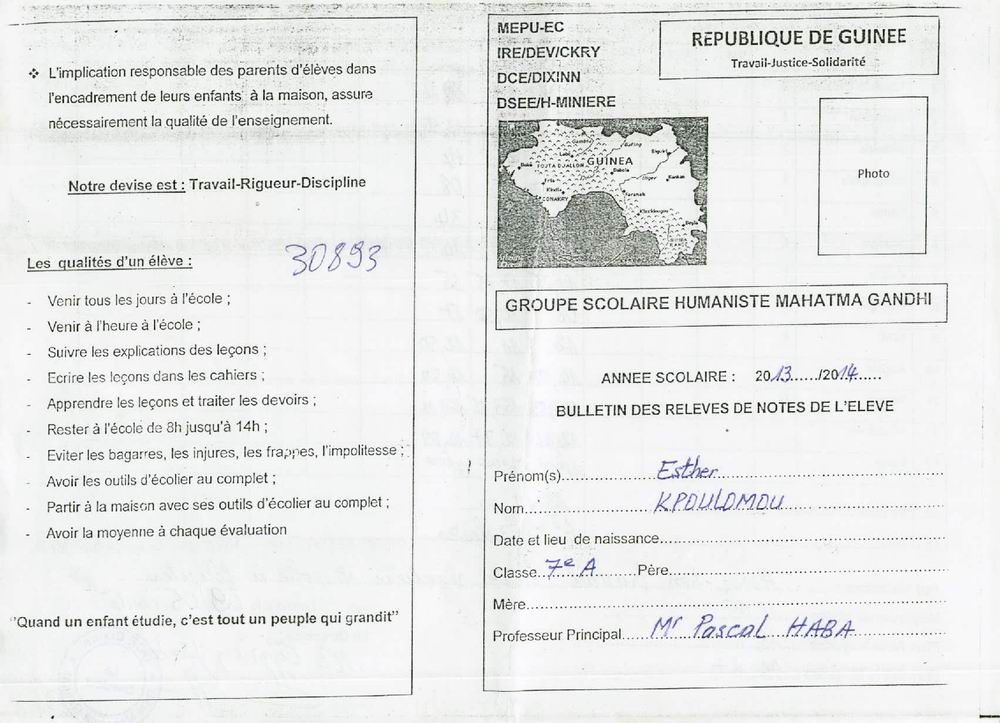 ❖ L'implication responsable des parents d'élèves dans
l'encadrement de leurs enfants à la maison, assure
nécessairement la qualité de l'enseignement.
Notre devise est : Travail-Rigueur-Discipline
30893
Les qualités d'un élève :
- Venir tous les jours à l'école ;
- Venir à l'heure à l'école ;
- Suivre les explications des leçons ;
- Ecrire les leçons dans les cahiers ;
- Apprendre les leçons et traiter les devoirs ;
- Rester à l'école de 8h jusqu'à 14h ;
- Eviter les bagarres, les injures, les frappes, l'impolitesse ;
- Avoir les outils d'écolier au complet ;
- Partir à la maison avec ses outils d'écolier au complet ;
- Avoir la moyenne à chaque évaluation
"Quand un enfant étudie, c'est tout un peuple qui grandit"
MEPU-EC
IRE/DEV/CKRY
DCE/DIXINN
DSEE/H-MINIERE
REPUBLIQUE DE GUINEE
Travail-Justice-Solidarité
GUINEA
FOUTA DJALLON
CONAKRY
Photo
GROUPE SCOLAIRE HUMANISTE MAHATMA GANDHI
ANNEE SCOLAIRE : 2013....../2014......
BULLETIN DES RELEVES DE NOTES DE L'ELEVE
Prénom(s)..........Esther..........
Nom..........KPOULOMOU..........
Date et lieu de naissance..........
Classe..7e A Père..........
Mère..........
Professeur Principal.....Mr Pascal HABA..........